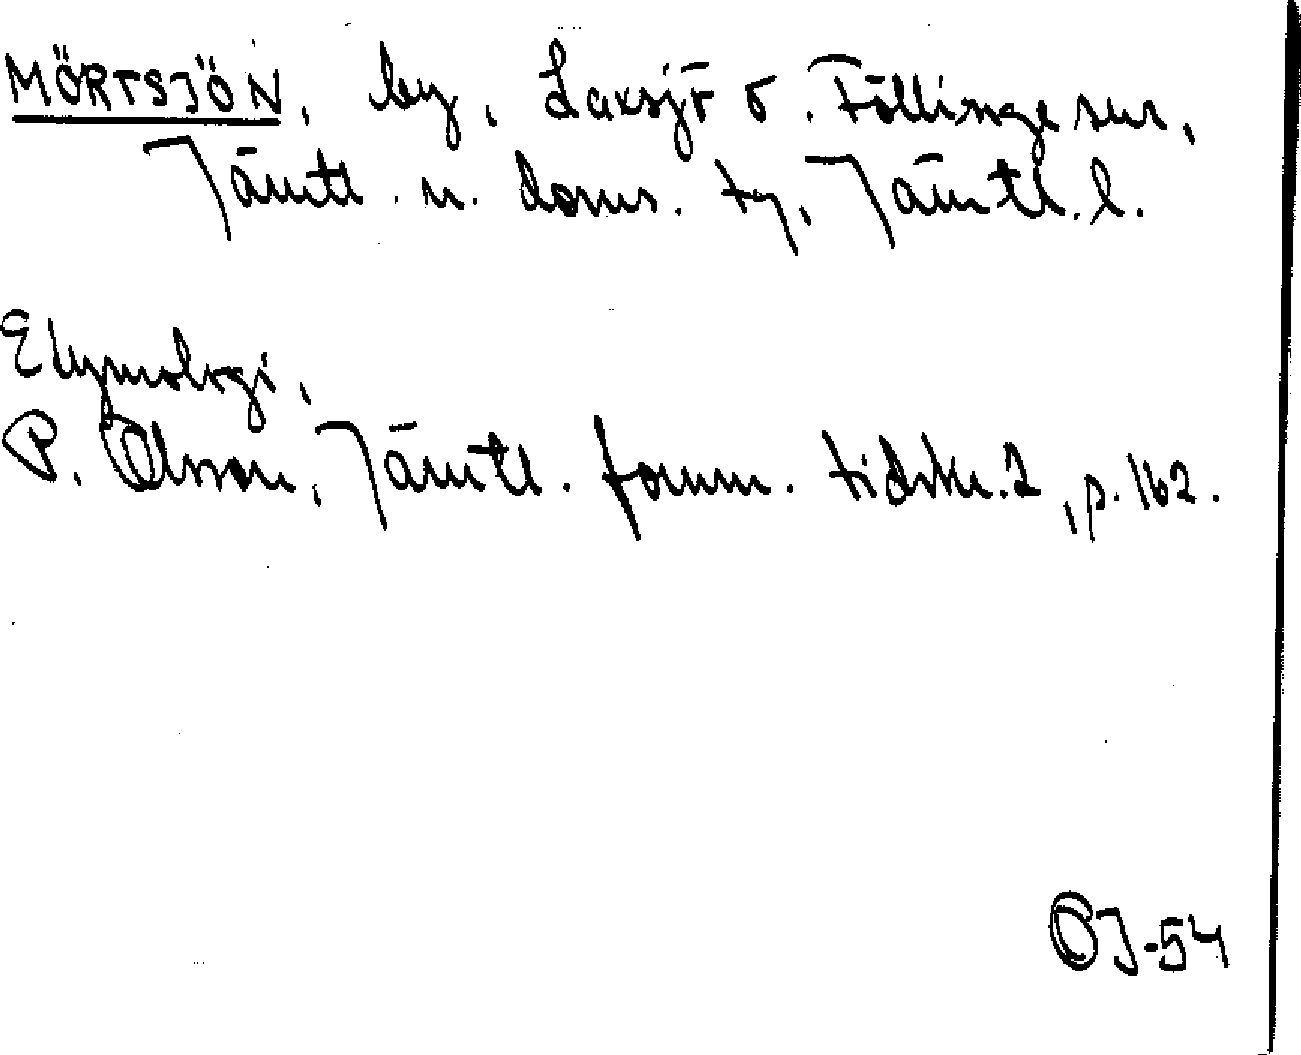 MÖRTSJÖN, by, Laxsjö o. Föllinge snr,
Jämtl. n. doms. tg, Jämtl. l.
Etymologi,
P. Olsson, Jämtl. fornm. tidskr. 2, p. 162.
ÖJ-54